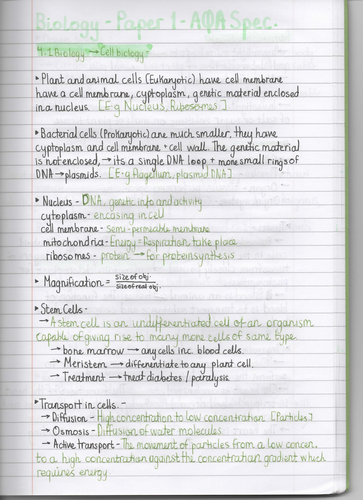 Biology - Paper 1 - AQA Spec.
4.1 Biology → Cell biology
▸ Plant and animal cells (Eukaryotic) have cell membrane
have a cell membrane, cyptoplasm, genetic material enclosed
in a nucleus. [E.g Nucleus, Ribosomes]
▸ Bacterial cells (Prokaryotic) are much smaller, they have
cyptoplasm and cell membrane + cell wall. The genetic material
is not enclosed, → its a single DNA loop + more small rings of
DNA → plasmids. [E.g Flagellum, plasmid DNA]
▸ Nucleus - DNA, genetic info and activity
cytoplasm - encasing in cell
cell membrane - semi-permeable membrane
mitochondria - Energy - Respiration take place
ribosomes - protein → for protein synthesis
▸ Magnification = size of obj.
size of real obj.
▸ Stem Cells -
→ A stem cell is an undifferentiated cell of an organism
capable of giving rise to many more cells of same type.
→ bone marrow → any cells inc. blood cells.
→ Meristem → differentiate to any plant cell.
→ Treatment → treat diabetes / paralysis.
▸ Transport in cells. -
→ Diffusion - High concentration to low concentration [Particles]
→ Osmosis - Diffusion of water molecules.
→ Active transport - The movement of particles from a low concen.
to a high concentration against the concentration gradient which
requires energy.